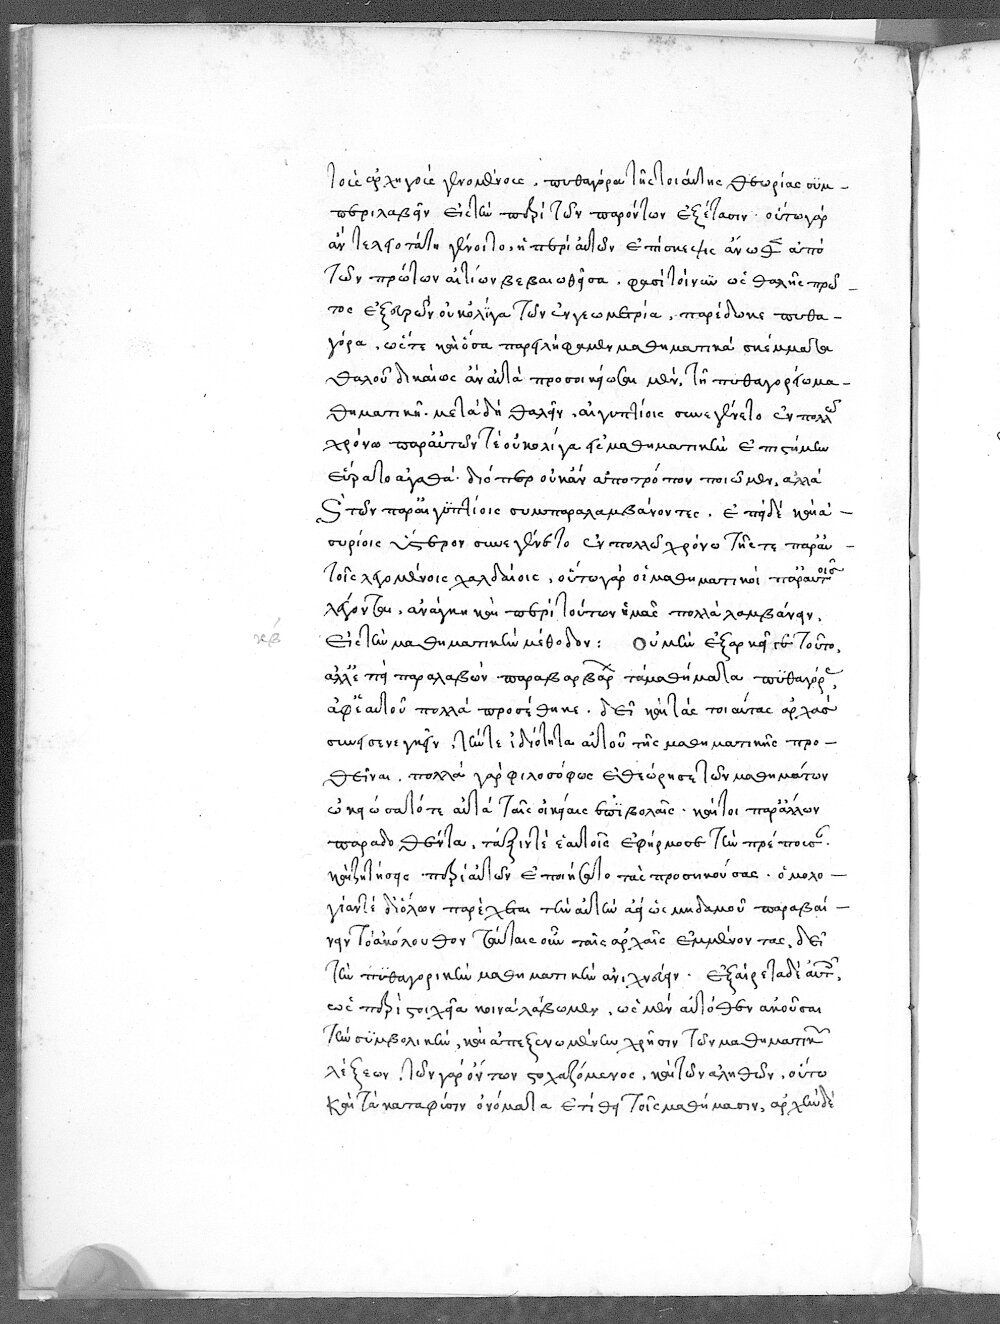 τοὺς ἀρχηγοὺς γενομένους, πυθαγόρα τῆς τοιαύτης θεωρίας συμ-
περιλαβεῖν εἰς τὴν περὶ τῶν παρόντων ἐξέτασιν· οὕτω γὰρ
ἂν τελεωτάτη γένοιτο, ἡ περὶ αὐτῶν ἐπίσκεψις ἄνωθεν ἀπὸ
τῶν πρώτων αἰτίων βεβαιωθεῖσα. φασὶ τοίνυν ὡς θαλῆς πρῶ-
τος ἐξευρὼν οὐκ ὀλίγα τῶν ἐν γεωμετρία, παρέδωκε πυθα-
γόρα, ὥστε καὶ ὅσα παρειλήφαμεν μαθηματικὰ σκέμματα
θαλοῦ δικαίως ἂν αὐτὰ προσοικειῶται μὲν, τῆ πυθαγορείω μα-
θηματικῆ. μετὰ δὴ θαλῆν, αἰγυπτίοις συνεγένετο ἐν πολλῶ
χρόνω παρ' αὐτῶν τὲ οὐκ ὀλίγα εἰς μαθηματικὴν ἐπιστήμην
εὕρατο ἀγαθά· διόπερ οὐκ ἂν ἄπο τρόπον ποιῶμεν, ἀλλὰ
καὶ τῶν παρ' αἰγυπτίοις συμπαραλαμβάνοντες. ἐπεὶ δὲ καὶ ἀ-
συρίοις ὕστερον συνεγένετο ἐν πολλῶ χρόνω τῆς τε παρ' αὐ-
τοῖς λεγομένοις χαλδαίοις, οὕτω γὰρ οἱ μαθηματικοὶ παρ' αὐτοῖς
λέγονται, ἀνάγκη καὶ περὶ τούτων ἡμᾶς πολλὰ λαμβάνειν,
κβ εἰς τὴν μαθηματικὴν μέθοδον: Οὐ μὴν ἐξαρκεῖ γε τοῦτο,
ἀλλ' ἐπεὶ παραλαβὼν παρὰ βαρβάρων τὰ μαθήματα πυθαγόρας,
ἀφ' ἑαυτοῦ πολλὰ προσέθηκε. δεῖ καὶ τὰς τοιαύτας ἀρχὰς
συνεισενεγκεῖν, τήν τε ἰδιότητα αὐτοῦ τῆς μαθηματικῆς προ-
θεῖναι. πολλὰ γὰρ φιλοσόφως ἐθεώρησε τῶν μαθημάτων
ὠκειώσατό τε αὐτὰ ταῖς οἰκείαις ἐπιβολαῖς. καίτοι παρ' ἄλλων
παραδοθέντα, τάξιν τὲ ἑαυτοῖς ἐφήρμοσε τὴν πρέπουσαν.
καὶ ζητήσεις περὶ αὐτῶν ἐποιήσατο τὰς προσηκούσας. ὁμολο-
γίαν τὲ δι' ὅλων παρέχεται τὴν αὐτὴν ἀεὶ ὡς μηδαμοῦ παραβαί-
νειν τὸ ἀκόλουθον ταύταις οὖν ταῖς ἀρχαῖς ἐμμένοντας, δεῖ
τὴν πυθαγορικὴν μαθηματικὴν ἀνιχνεύειν. ἐξαίρετα δὲ αὐτῆς,
ὡς περὶ στοιχεῖα κοινὰ λάβωμεν, ὡς μὲν αὐτόθεν ἀκοῦσαι
τὴν συμβολικὴν, καὶ ἀπεξενωμένην χρῆσιν τῶν μαθηματικῶν
λέξεων, τῶν γὰρ ὄντων στοχαζόμενος, καὶ τῶν ἀληθῶν, οὕτω
καὶ τὰ κατὰ φύσιν ὀνόματα ἐτίθει τοῖς μαθήμασιν, ἀρχὴν δὲ